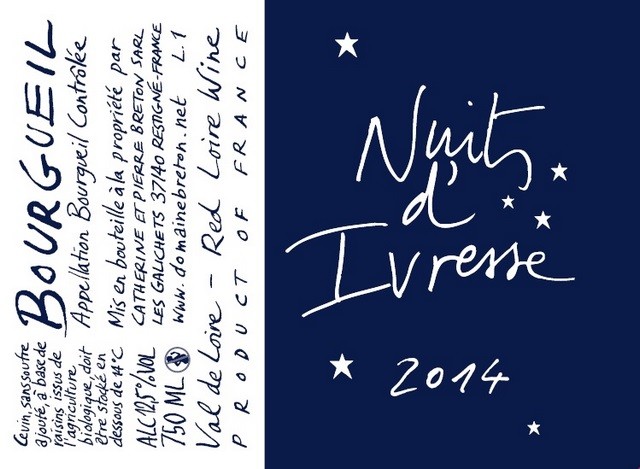 Nuits
d'
Ivresse
2014
BOURGUEIL
Appellation Bourgueil Contrôlée
Mis en bouteille à la propriété par
CATHERINE ET PIERRE BRETON SARL
LES GALICHETS 37140 RESTIGNÉ-FRANCE
www.domainebreton.net L.1
Val de Loire - Red Loire Wine
PRODUCT OF FRANCE
Ce vin, sans soufre
ajouté, à base de
raisins issus de
l'agriculture
biologique, doit
être stocké en
dessous de 14°C
ALC 12,5%VOL
750 ML